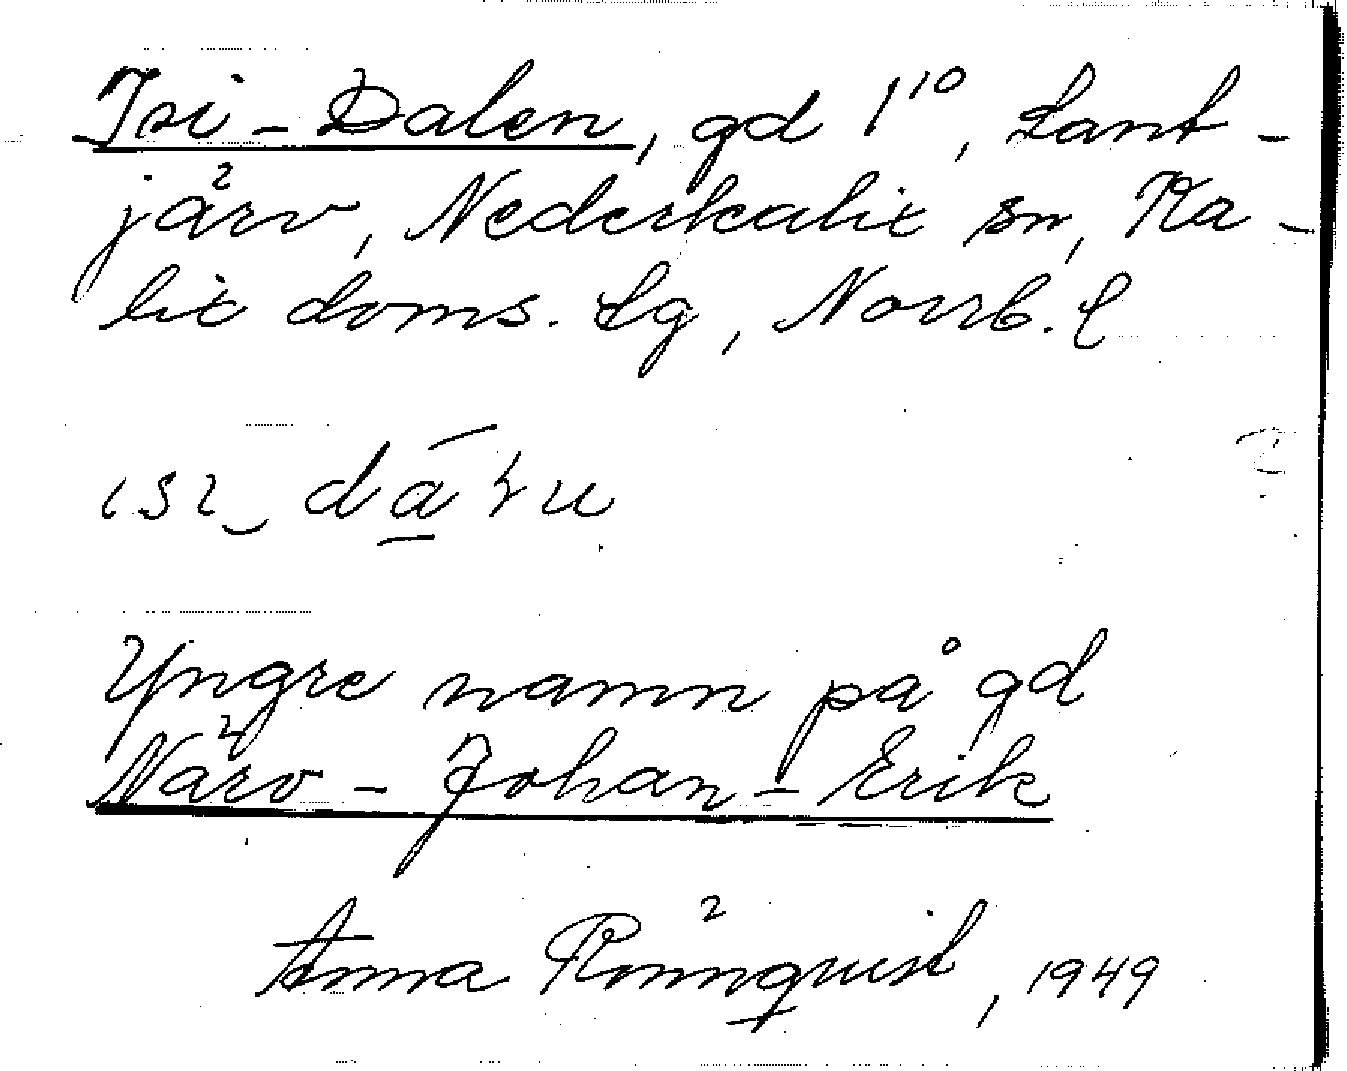 Isi-Dalen, gd 1¹⁰, Lant-
järv, Nederkalix sn, Ka-
lix doms. lg, Norrb. l
Yngre namn på gd
Närv-Johan-Erik
Anna Rönnqvist, 1949